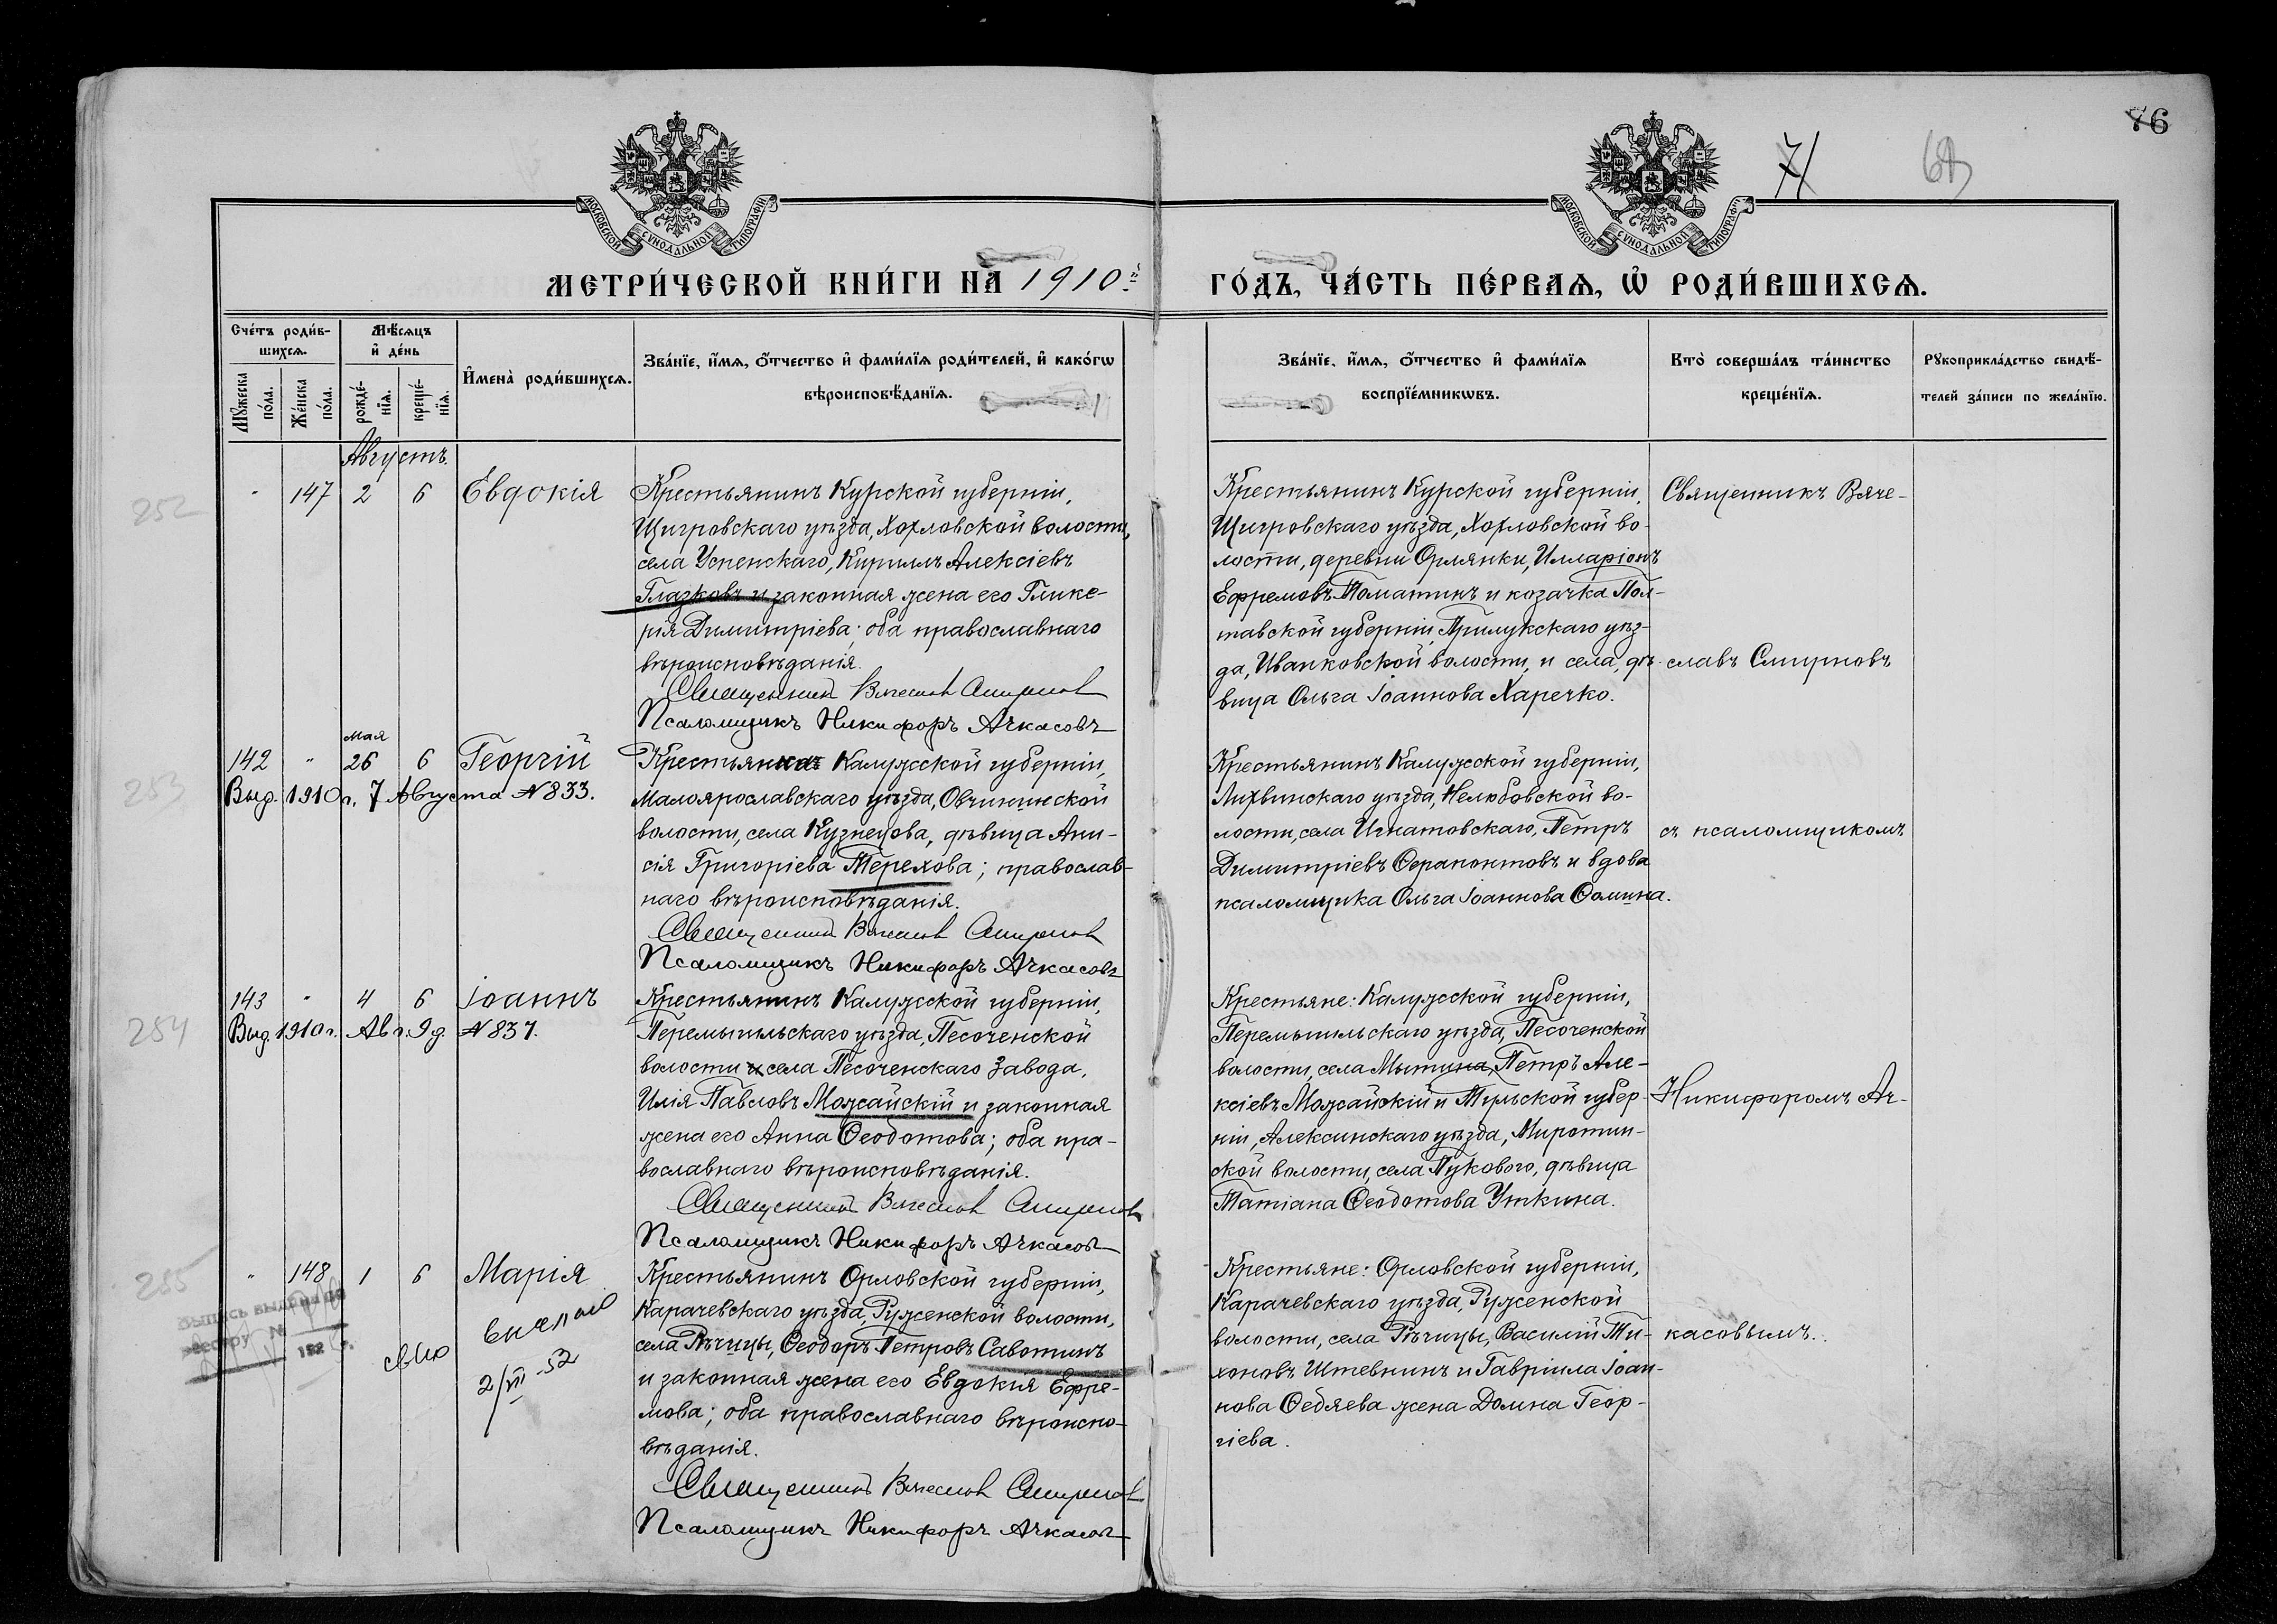 76
71
МОСКОВСКОЙ СѴНОДАЛЬНОЙ ТИПОГРАФІИ
МОСКОВСКОЙ СѴНОДАЛЬНОЙ ТИПОГРАФІИ
МЕТРИ́ЧЕСКОЙ КНИ́ГИ НА 1910й
ГО́ДЪ, ЧА́СТЬ ПЕ́РВАѦ, Ѡ҆ РОДИ́ВШИХСѦ.
Сче́тъ роди́в-
шихсѧ.
Мꙋ́жеска по́ла.
Же́нска по́ла.
Мѣ́сѧцъ
и҆ де́нь
рожде́-
нїѧ.
креще́-
нїѧ.
И҆мена̀ роди́вшихсѧ.
Зва́нїе, и҆́мѧ, ѻ҆́тчество и҆ фами́лїѧ роди́телей, и҆ како́гѡ
вѣроисповѣ́данїѧ.
Зва́нїе, и҆́мѧ, ѻ҆́тчество и҆ фами́лїѧ
воспрїе́мникѡвъ.
Кто̀ соверша́лъ та́инство
креще́нїѧ.
Рꙋкоприкла́дство свидѣ́-
телей за́писи по жела́нїю.
Августъ.
252
" 147 2 6 Евдокія
Крестьянинъ Курской губерніи,
Щигровскаго уѣзда, Хохловской волости,
села Успенскаго, Кириллъ Алексіевъ
Глазковъ и законная жена его Глике-
рія Димитріева; оба православнаго
вѣроисповѣданія.
Священникъ Вячеславъ Смирновъ
Псаломщикъ Никифоръ Ачкасовъ
Крестьянинъ Курской губерніи,
Щигровскаго уѣзда, Хохловской во-
лости, деревни Орлянки, Илларіонъ
Ефремовъ Поматинъ и козачка Пол-
тавской губерніи, Прилукскаго уѣз-
да, Иванковской волости, и села, дѣ-
вица Ольга Іоаннова Харечко.
Священникъ Вяче-
славъ Смирновъ
253
мая
142 " 26 6 Георгій
Выд. 1910 г. 7 Августа №833.
Крестьянка Калужской губерніи,
Малоярославскаго уѣзда, Овчининской
волости, села Кузнецова, дѣвица Ани-
сія Григоріева Терехова; православ-
наго вѣроисповѣданія.
Священникъ Вячеславъ Смирновъ
Псаломщикъ Никифоръ Ачкасовъ
Крестьянинъ Калужской губерніи,
Лихвинскаго уѣзда, Нелюбовской во-
лости, села Игнатовскаго, Петръ
Димитріевъ Ѳерапонтовъ и вдова
псаломщика Ольга Іоаннова Ѳомина.
съ псаломщикомъ
254
143 " 4 6 Іоаннъ
Выд. 1910 г. Авг. 9 д. №837.
Крестьянинъ Калужской губерніи,
Перемышльскаго уѣзда, Песоченской
волости и села Песоченскаго Завода,
Илія Павловъ Можайскій и законная
жена его Анна Ѳеодотова; оба пра-
вославнаго вѣроисповѣданія.
Священникъ Вячеславъ Смирновъ
Псаломщикъ Никифоръ Ачкасовъ
Крестьяне: Калужской губерніи,
Перемышльскаго уѣзда, Песоченской
волости, села Мытина, Петръ Але-
ксіевъ Можайскій и Тульской губер-
ніи, Алексинскаго уѣзда, Миротин-
ской волости, села Пукового, дѣвица
Татіана Ѳеодотова Уткина.
Никифоромъ Ач-
255
" 148 1 6 Марія
2/VII-52
Крестьянинъ Орловской губерніи,
Карачевскаго уѣзда, Руженской волости,
села Рѣчицы, Ѳеодоръ Петровъ Савотинъ
и законная жена его Евдокія Ефре-
мова; оба православнаго вѣроиспо-
вѣданія.
Священникъ Вячеславъ Смирновъ
Псаломщикъ Никифоръ Ачкасовъ
Крестьяне: Орловской губерніи,
Карачевскаго уѣзда, Руженской
волости, села Рѣчицы, Василій Ти-
хоновъ Штевнинъ и Гавріила Іоан-
нова Ѳедяева жена Домна Геор-
гіева.
касовымъ.